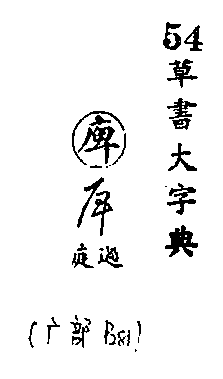 54
草書大字典
庳
庳
過庭
(广部 B81)